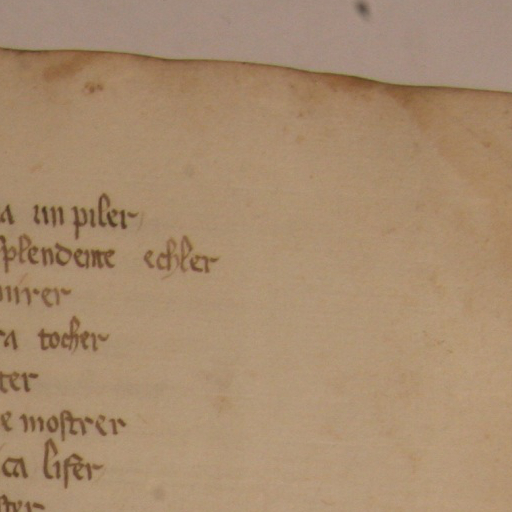 a un piler
splendente echler
mirer
ra tocher
ter
e mostrer
ca lifer
ster